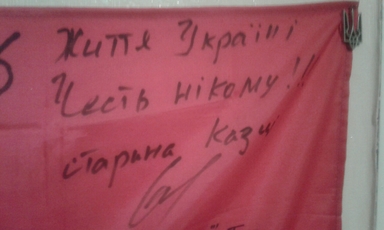 Життя Україні
Честь нікому!!
старина